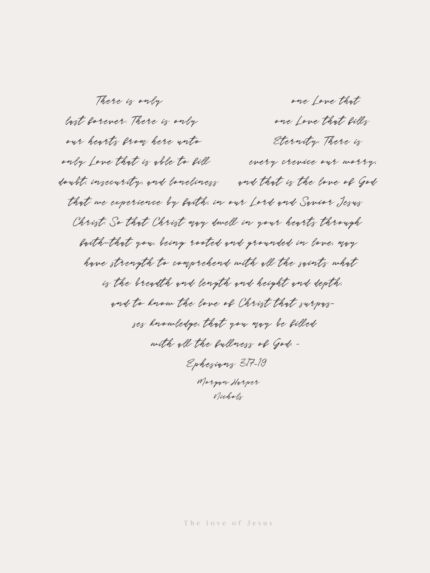 There is only one Love that
last forever. There is only one Love that fills
our hearts from here unto Eternity. There is
only Love that is able to fill every crevice our worry,
doubt, insecurity, and loneliness and that is the love of God
that we experience by faith, in our Lord and Savior Jesus
Christ. So that Christ may dwell in your hearts through
faith-that you, being rooted and grounded in love, may
have strength to comprehend with all the saints what
is the breadth and length and height and depth,
and to know the love of Christ that surpas-
ses knowledge, that you may be filled
with all the fullness of God. -
Ephesians 3:17-19
Morgan Harper
Nichols
The love of Jesus